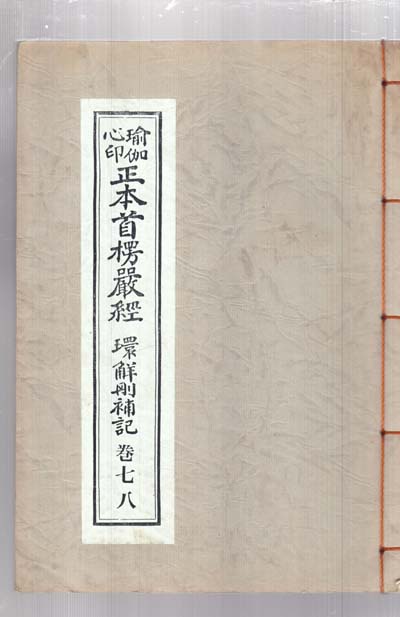 瑜伽
心印
正本首楞嚴經
環解刪補記
卷七八